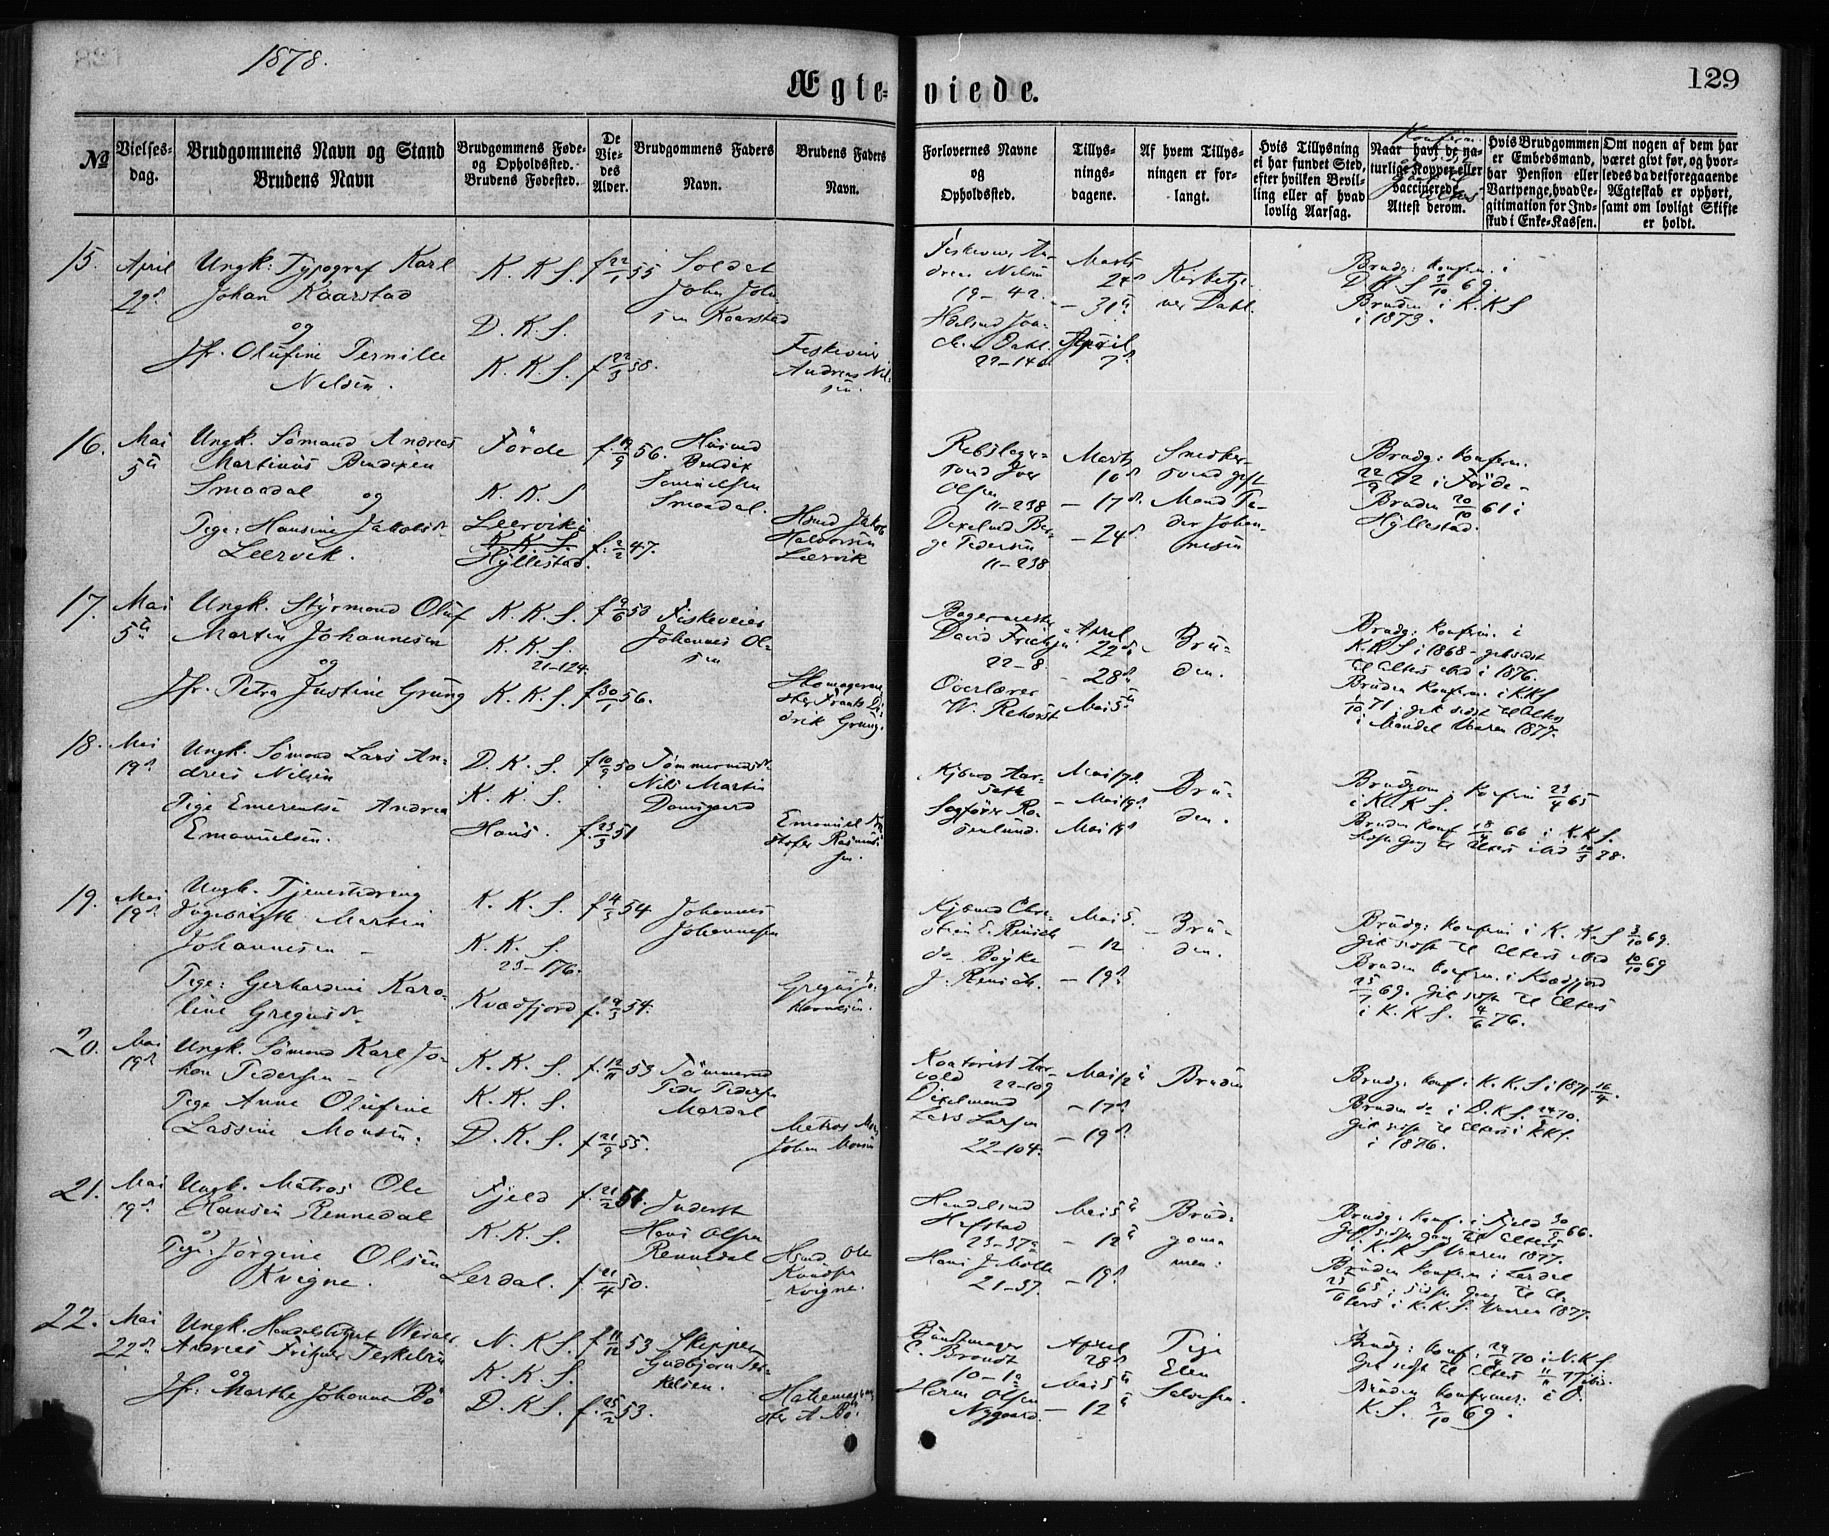 1878.
129
Ægte-
viede.
№
Vielses-
dag.
Brudgommens Navn og Stand
Brudens Navn
Brudgommens Føde-
og Opholdssted.
Brudens Fødested.
De
Vie-
des
Alder.
Brudgommens Faders
Navn.
Brudens Faders
Navn.
Forlovernes Navne
og
Opholdssted.
Tillys-
nings-
dagene.
Af hvem Tillys-
ningen er for-
langt.
Hvis Tillysning
ei har fundet Sted,
efter hvilken Bevil-
ling eller af hvad
lovlig Aarsag.
Naar havt de na-
turlige Kopper eller
vaccinerede
Attest derom.
Hvis Brudgommen
er Embedsmand,
har Pension eller
Vartpenge, hvad Le-
gitimation for Ind-
skud i Enke-Kassen.
Om nogen af dem har
været givt før, og hvor-
ledes da det foregaaende
Ægteskab er ophørt,
samt om lovligt Skifte
er holdt.
15.
April
22d
Ungk: Typograf Karl
Johan Kaarstad
og
Jfr. Olufine Pernille
Nelsen.
K. K. S.
D. K. S.
K. K. S.
f 22/1 55
f 22/3 58.
Soldat
John John
sen Kaarstad
Fiskeveier
Andreas Nil-
sen.
Fiskeveier An-
dreas Nilsen
19-42.
22-14a
Marts
24d
- 31te
April
7d
Kirketje-
ner Dahl.
Brudg: konfirm. i
D K S 3/10 69.
Bruden i K.K.S
i 1873.
16.
Mai
5te
Ungk. Sömand Andreas
Martinus Bendixen
Smaadal og
Pige: Hansine Jakobsdr
Leervik.
Förde
K. K. S
Leervik i
K. K. S.
Hyllestad.
f. 19/9 56.
f. 2/2 47.
Husmd
Bendix
Samuelsen
Smaadal.
Hsmd Jakob
Halvorsen
Leervik
Rebslager-
svend Iver
Olsen
11-238
Dixelmd Ber-
ge Pedersen
11-238
Marts
10d
- 17d.
- 24d
Snedker-
svend gift
Mand Pe-
der Johan-
nesen
Brudg: konfirm.
22/9 72 i Förde -
Bruden 20/10 61 i
Hyllestad.
17.
Mai
5te
Ungk. Styrmand Oluf
Martin Johannesen
og
Jfr. Petra Justine Grung
K. K. S.
K. K. S.
21-124.
K. K. S.
f 9/6 53
f 30/1 56.
Fiskeveier
Johannes Ol-
sen
Skomagerme-
ster Frants Di-
drik Grung.
Bagermester
David Frichsen
22-8.
Overlærer
W. Rehorst
April
22d
- 28d
Mai 5te
Bru-
den.
Brudg: konfirm. i
K.K.S i 1868 - gik sidst
til Alters ibid i 1876.
Bruden konfirm. i KKS
1/10 71. gik sidst til Alters
i Mandal Vaaren 1877.
18.
Mai
19d
Ungk. Sömand Lars An-
dreas Nilsen
Pige Emerentse Andrea
Emanuelsen.
D. K. S.
K. K. S.
Haus.
f 10/9 50
f. 23/3 51
Tömmermd.
Nils Martin
Damsgaard
Emanuel Kri
stofer Rasmus-
sen.
Sagförer Ro-
senlund.
Bru-
den.
Brudgom. konfirm 23/4 65
i K. K. S.
Bruden konf 18/4 66 i K.K.S.
19.
Mai
19d
Ungk. Tjenestedreng
Ingebrigt Martin
Johannesen -
Pige: Gerhardine Karo-
line Gregusdr
K. K. S.
K. K. S.
23-176.
Kvædfjord
f 4/3 54
f. 9/3 54.
Johannes
Johannesen
Gregus Jo-
hannesen.
Kjbmd Chri-
stian E. Reinick
do Böyke
J. Reinich.
Mai 5
- 12
- 19d
Bru-
den.
Brudg: konfirm i K. K. S 3/10 69.
gik sidst til Alters ibid 10/10 69
Bruden konfirm. i Kvædfjord
25/7 69. Gik sidst til Alters
i K. K. S. 4/6 76.
20.
Mai
19d
Ungk. Sömand Karl Jo-
han Pedersen -
Pige Anne Olufine
Lassine Monsen.
K. K. S.
K. K. S.
D. K. S.
f. 12/11 53
f 21/9 55.
Tömmermd
Peder Pedersen
Mardal
Matros Mons
Johan Monsen
Kontorist Aar-
vold 22-109
Dixelmand
Lars Larsen
22-104.
Mai 12te
- 17d
- 19d
Bruden
Brudg: konf. i K. K. S i 1871 16/4.
Bruden do i D.K.S. 24/4 70.
Gik sidst til Alters i KKS.
i 1876.
21.
Mai
19d.
Ungk. Matros Ole
Hansen Rennedal
og
Pige. Jörgine Olsen
Kvigne.
Fjeld
K. K. S.
Lerdal.
f. 21/2 51.
f. 21/4 50.
Inderst
Hans Olsen
Rennedal
Hsmd. Ole
Knudsen
Kvigne.
Handelsmd
Hafstad
23-37a
Hans J. Molle
21-37.
Mai 5te
- 12te
- 19d
Brud-
gom-
men.
Brudg: konf. i Fjeld 30/9 66.
gik sidste gang til Alters
i K. K. S Vaaren 1877.
Bruden konfirm i Lerdal
25/6 65, sidste gang til Al-
ters i K.K.S. Vaaren 1877.
22.
Mai
22d
Ungk. Handelsbetjent Werner
Andreas Fritzner Terkelsen
og
Jfr: Marthe Johanna Bö
N. K. S.
K. K. S.
D. K. S.
f. 11/12 53
f. 25/2 53.
Skipper
Gudbjörn Ter-
kelsen.
A Bö.
Buntmager
C. Brandt
10-1a
Herm Olsen
Nygaard.
April
28d
Mai 5te
- 12te
Pige
Elen
Salvesen.
Brudg: konf. 24/4 70 i N.K.S.
Gik sidst til Alters 1/11 77 ibid.
Bruden konfirmer. i D.
K.S. 3/10 69.